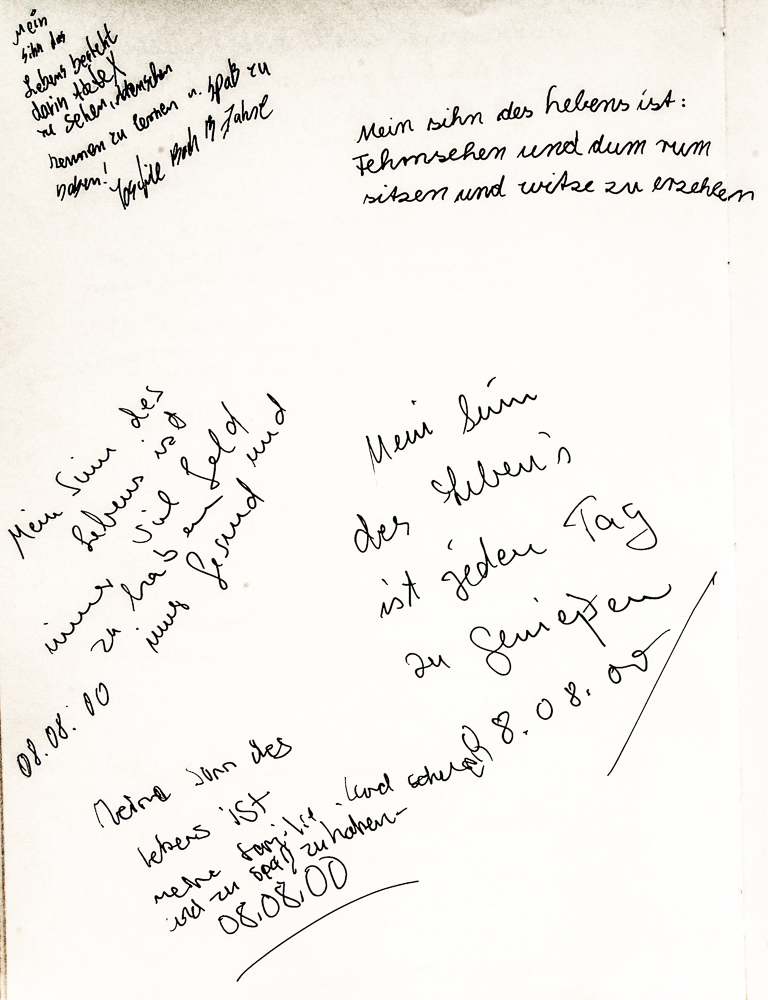 Mein
sihn des
Lebens besteht
darin
zu sehen, Menschen
kennen zu lernen u. spaß zu
haben! 13 Jahre
Mein sihn des Lebens ist:
Fehrnsehen und dum rum
sitzen und witze zu erzehlen
Mein Sinn des
Lebens ist
immer viel Geld
zu haben und
immer Gesund
08.08.00
Mein Sinn
des Leben's
ist jeden Tag
zu Genießen
8.08.00
Meine Sinn des
lebens ist
meine Familie. Und
und zu spaß zu haben-
08.08.00